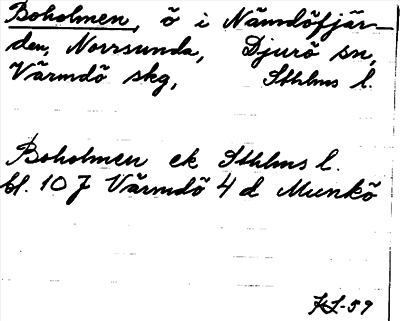 Boholmen, ö i Nämdöfjär-
den, Norrsunda, Djurö sn,
Värmdö skg, Sthlms l.
Boholmen ek Sthlms l.
bl. 10 J Värmdö 4 d Munkö
KL-59